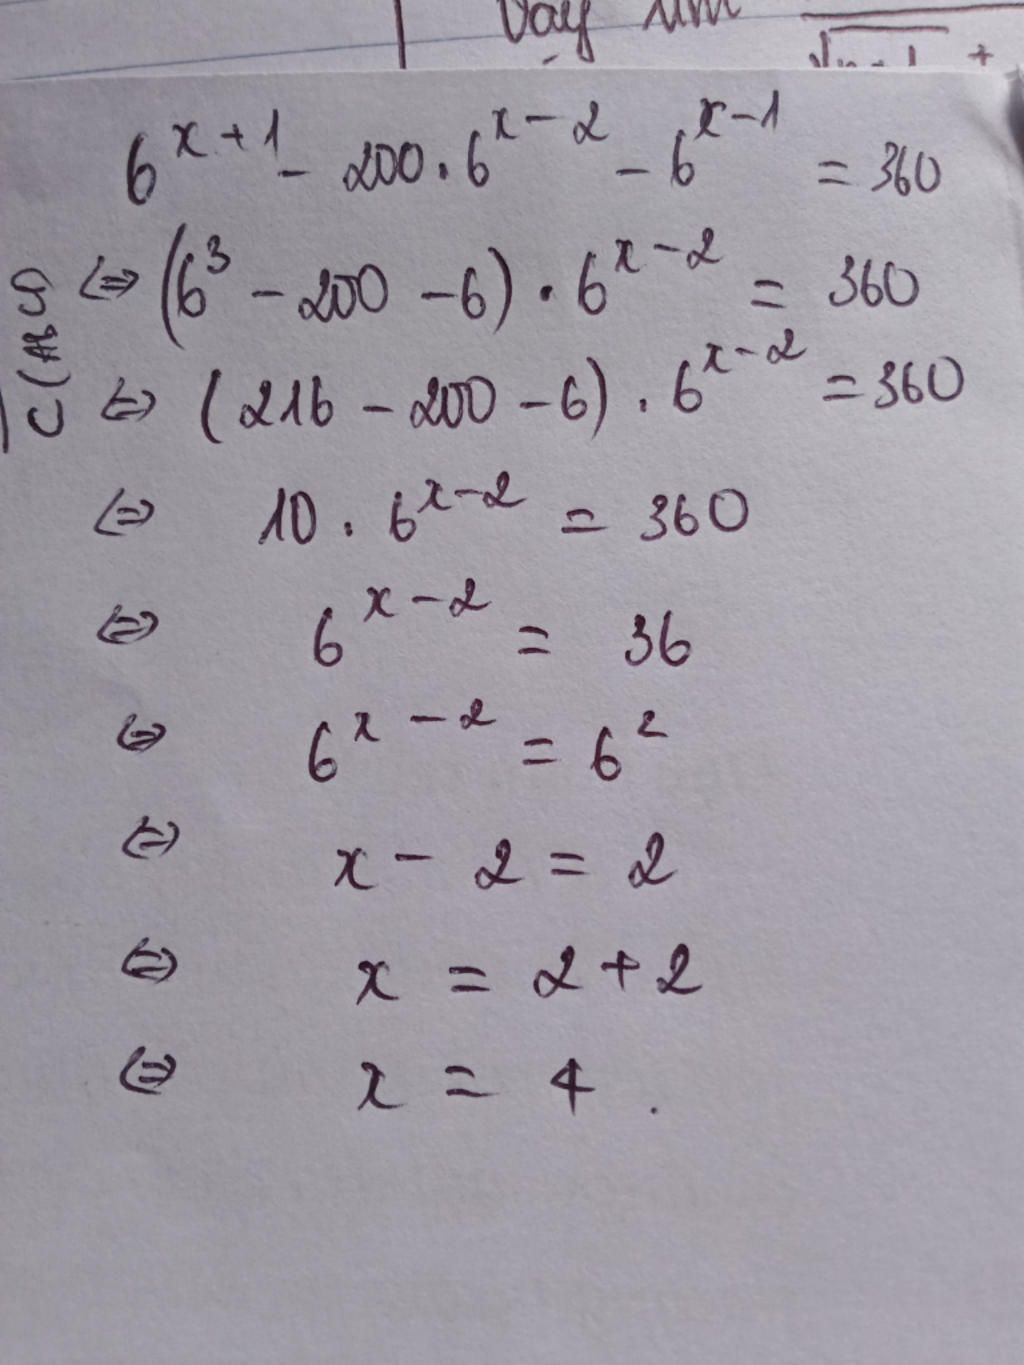 Vậy lim
6^{x+1} - 200 . 6^{x-2} - 6^{x-1} = 360
⇔ (6^3 - 200 - 6) . 6^{x-2} = 360
⇔ (216 - 200 - 6) . 6^{x-2} = 360
⇔ 10 . 6^{x-2} = 360
⇔ 6^{x-2} = 36
⇔ 6^{x-2} = 6^2
⇔ x - 2 = 2
⇔ x = 2 + 2
⇔ x = 4 .